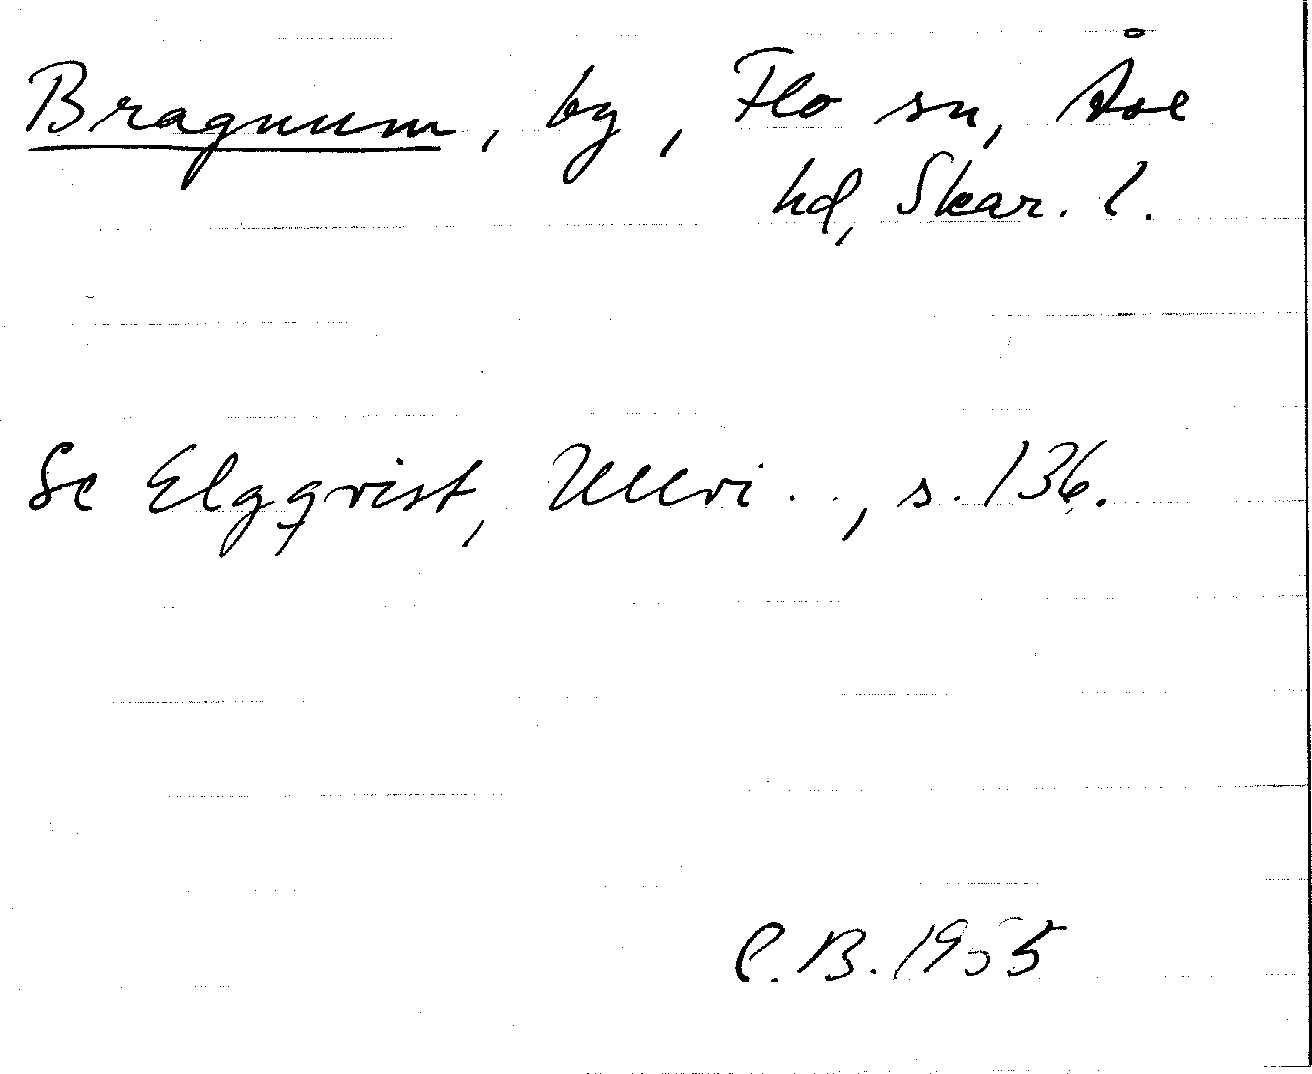 Bragnum, by, Flo sn, Åse
hd, Skar. l.
Se Elgqvist, Ullvi . ., s. 136.
C.B. 1955